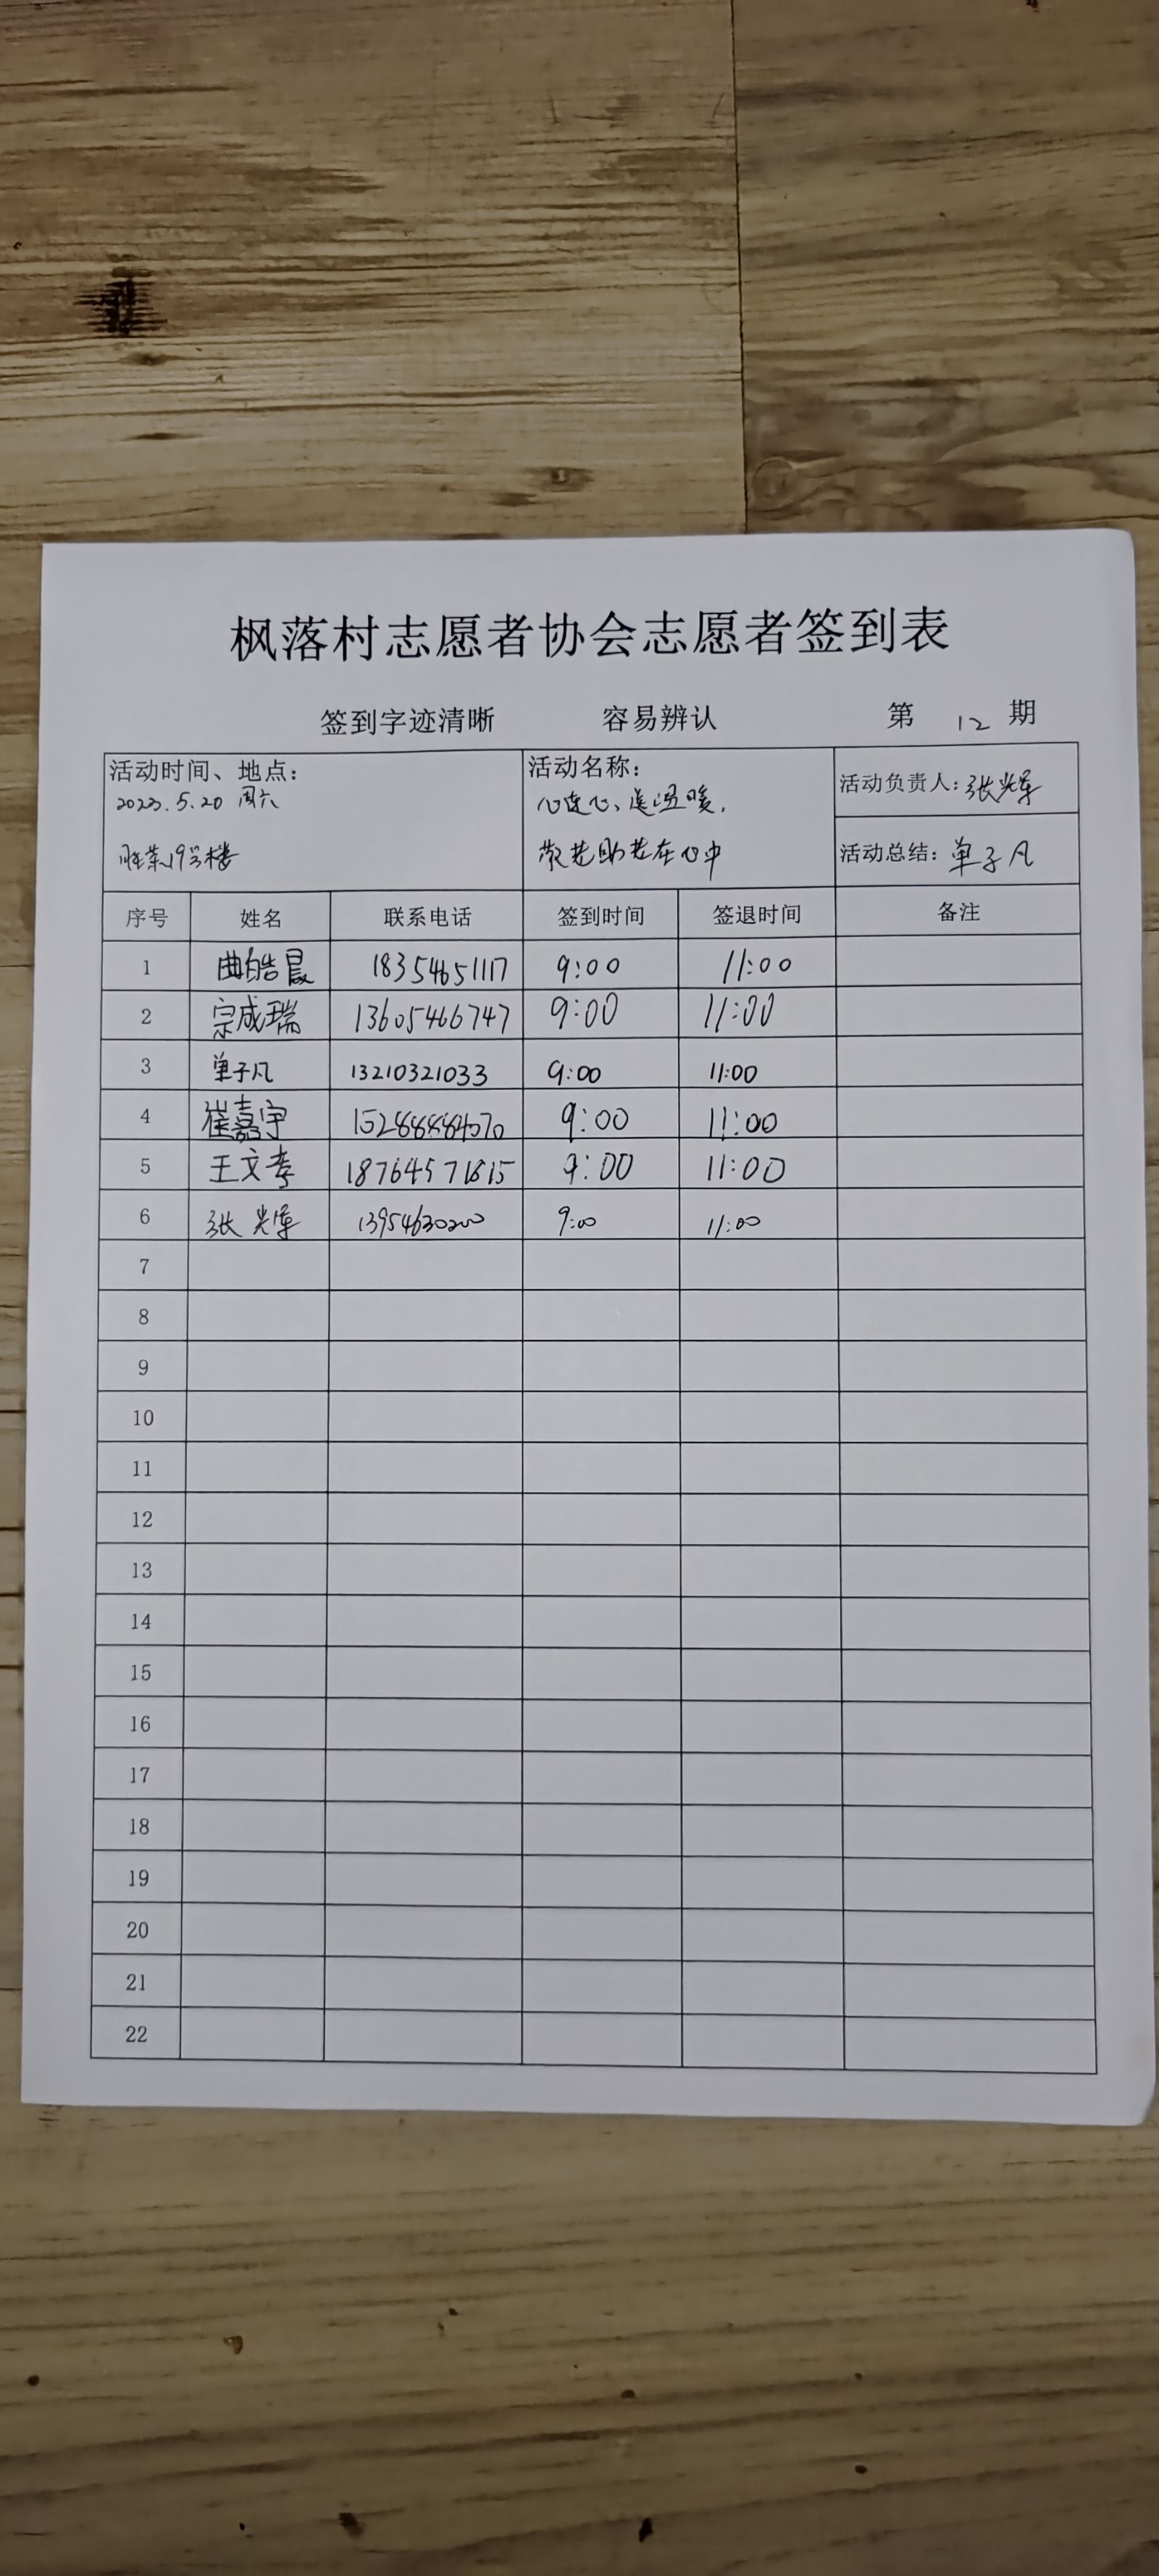 枫落村志愿者协会志愿者签到表
签到字迹清晰 容易辨认 第 12 期
活动时间、地点： 活动名称： 活动负责人：张光军
2023.5.20 周六 心连心、送温暖，
旺莱19号楼 敬老助老在心中 活动总结：单子凡
序号 姓名 联系电话 签到时间 签退时间 备注
1 曲皓晨 18354651117 9:00 11:00
2 宗成瑞 13605466747 9:00 11:00
3 单子凡 13210321033 9:00 11:00
4 崔嘉宇 9:00 11:00
5 王文孝 18764571815 9:00 11:00
6 张光军 13954630200 9:00 11:00
7
8
9
10
11
12
13
14
15
16
17
18
19
20
21
22